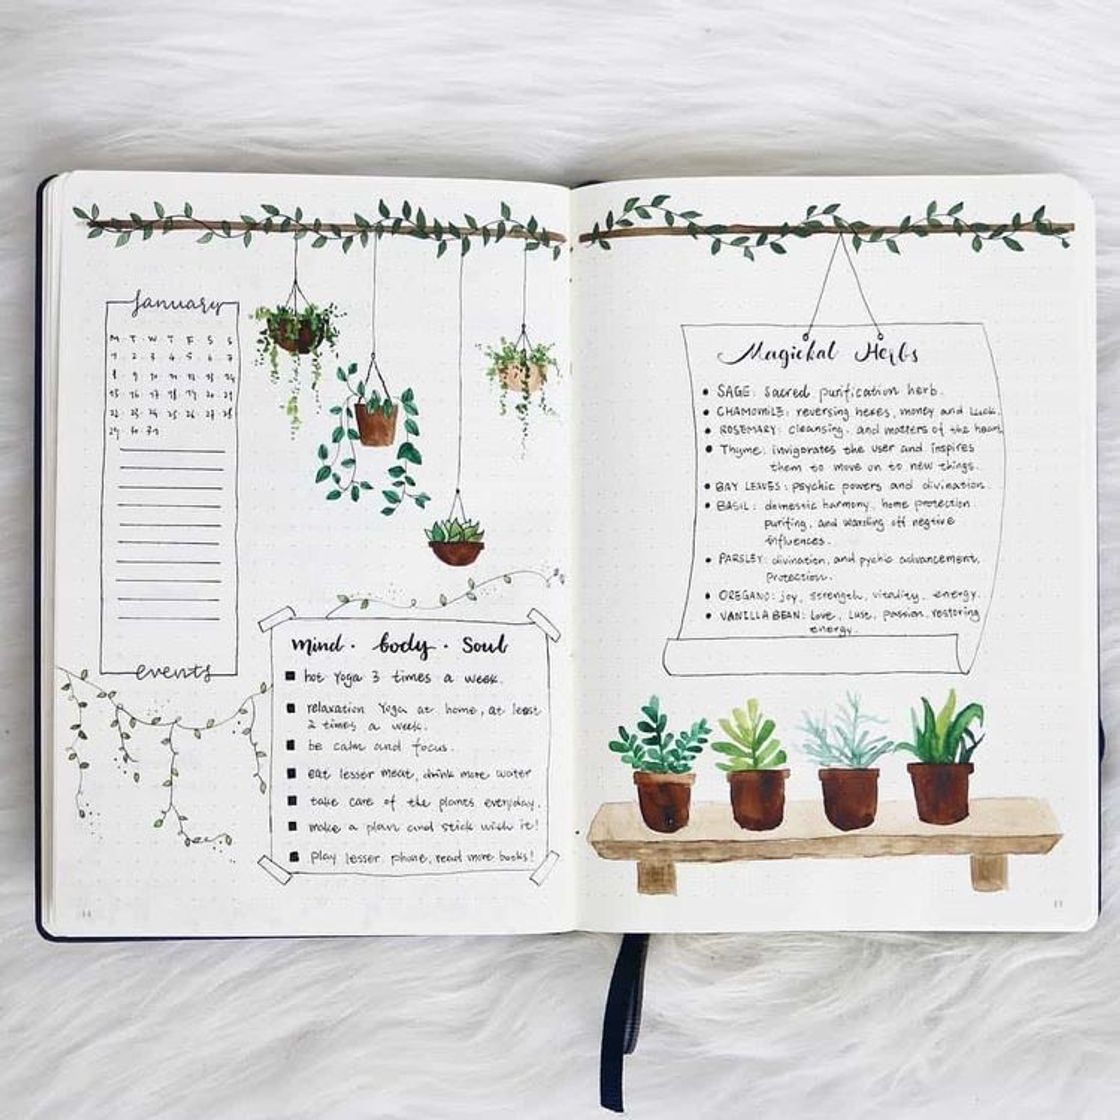 January
M T W T F S S
1 2 3 4 5 6 7
8 9 10 11 12 13 14
15 16 17 18 19 20 21
22 23 24 25 26 27 28
29 30 31
events
mind. body. Soul
hot Yoga 3 times a week.
relaxation Yoga at home, at least
2 times a week.
be calm and focus.
eat lesser meat, drink more water
take care of the plants everyday.
make a plan and stick with it!
play lesser phone, read more books!
14
Magickal Herbs
SAGE: sacred purification herb.
CHAMOMILE: reversing hexes, money and luck.
ROSEMARY: cleansing, and matters of the heart
Thyme: invigorates the user and inspires
them to move on to new things.
BAY LEAVES: psychic powers and divination.
BASIL: domestic harmony, home protection.
purifing, and warding off negtive
influences.
PARSLEY: divination, and pychic advancement,
protection.
OREGANO: joy, strength, vitality, energy.
VANILLA BEAN: love, lust, passion, restoring
energy.